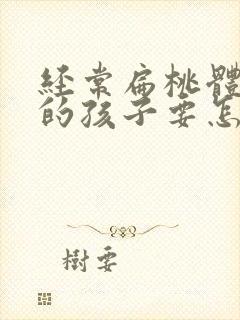 经常扁桃體
的孩子要怎
樹要